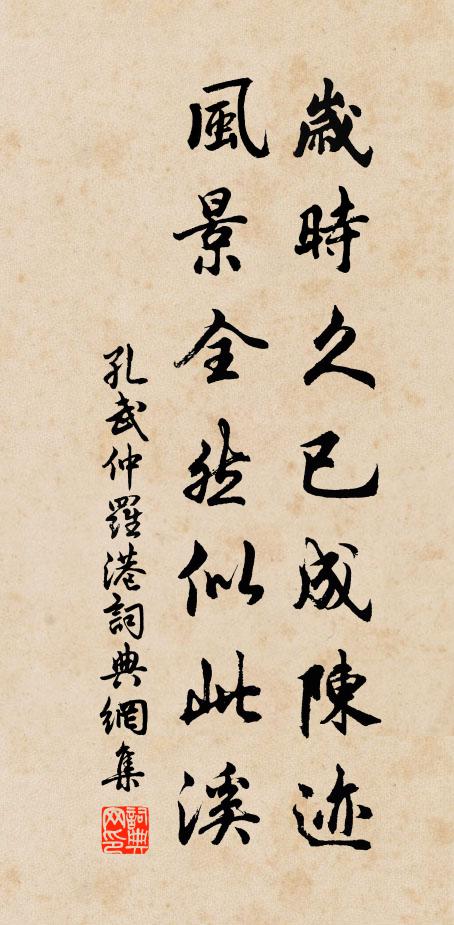 歲時久已成陳迹
風景全然似此溪
孔武仲羅港詞典網集
詞典网印